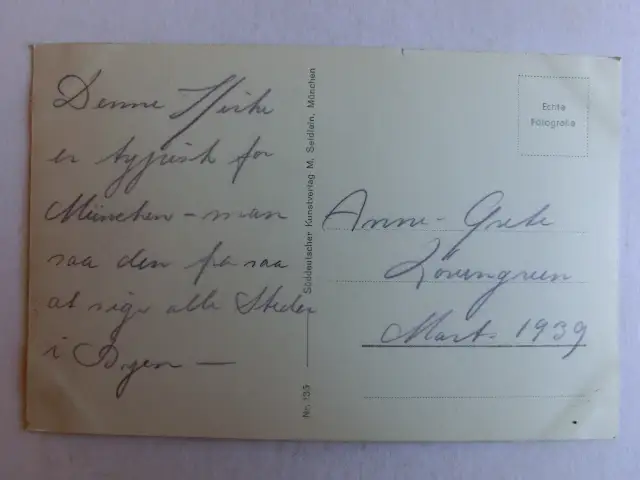 Denne Kirke
er typisk for
München - man
saa den paa saa
at sige alle Steder
i Byen —
Süddeutscher Kunstverlag M. Seidlein, München
Nr. 135
Echte
Fotografie
Anne-Grete
Lövengreen
Mart. 1939